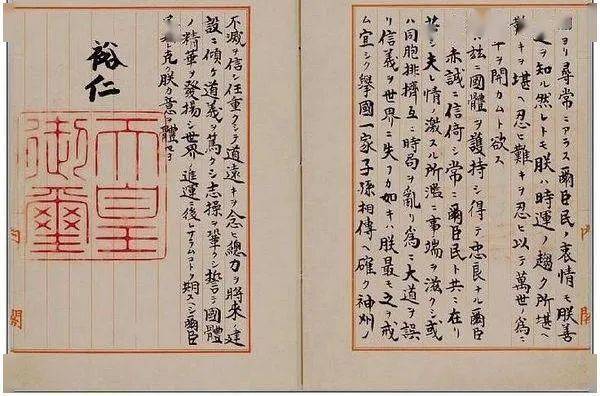 ヨリ尋常ニアラス爾臣民ノ衷情モ朕善
之ヲ知ル然レトモ朕ハ時運ノ趨ク所堪ヘ
難キヲ堪ヘ忍ヒ難キヲ忍ヒ以テ萬世ノ爲ニ
平ヲ開カムト欲ス
ハ茲ニ國體ヲ護持シ得テ忠良ナル爾臣
赤誠ニ信倚シ常ニ爾臣民ト共ニ在リ
若シ夫レ情ノ激スル所濫ニ事端ヲ滋クシ或
ハ同胞排擠互ニ時局ヲ亂リ爲ニ大道ヲ誤
リ信義ヲ世界ニ失フカ如キハ朕最モ之ヲ戒
ム宜シク擧國一家子孫相傳ヘ確ク神州ノ
不滅ヲ信シ任重クシテ道遠キヲ念ヒ總力ヲ將來ノ建
設ニ傾ケ道義ヲ篤クシ志操ヲ鞏クシ誓テ國體
ノ精華ヲ發揚シ世界ノ進運ニ後レサラムコトヲ期スヘシ爾臣
民其レ克ク朕カ意ヲ體セヨ
裕仁
天皇
御璽
内閣